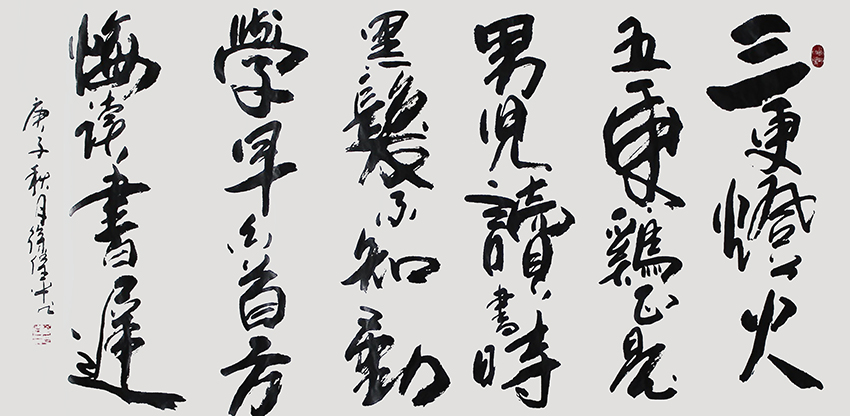 三更燈火
五更鷄正是
男兒讀書時
黑髮不知勤
學早白首方
悔讀書遲
庚子秋月徐